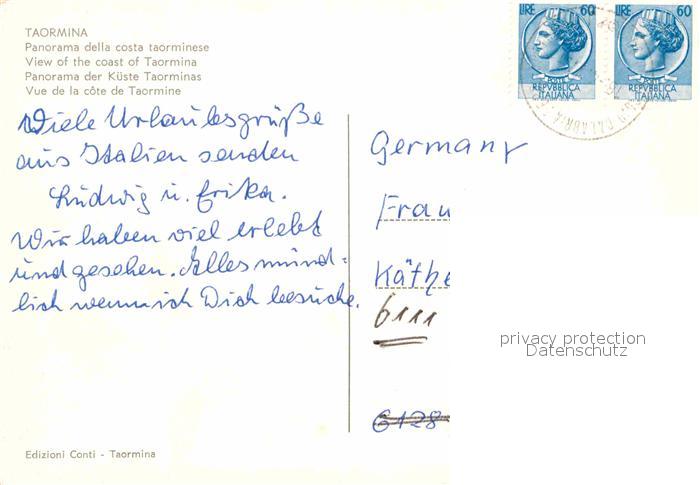 TAORMINA
Panorama della costa taorminese
View of the coast of Taormina
Panorama der Küste Taorminas
Vue de la côte de Taormine
LIRE 60
POSTE
REPVBBLICA
ITALIANA
LIRE 60
POSTE
REPVBBLICA
ITALIANA
CALABRIA
Viele Urlaubsgrüße
aus Italien senden
Ludwig u. Erika.
Wir haben viel erlebt
und gesehen. Alles münd=
lich wenn ich Dich besuche.
Germany
Frau
Käthe
6111
6128
privacy protection
Datenschutz
Edizioni Conti - Taormina